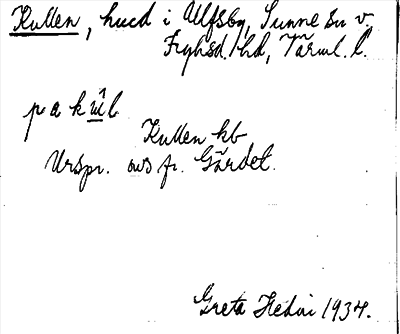 Kullen, hucd i Ulfsby, Sunne sn v.
Fryksd. hd, Värml. l.
pa kul
Kullen kb
Urspr. avs fr. Gärdet.
Greta Hedin 1934.